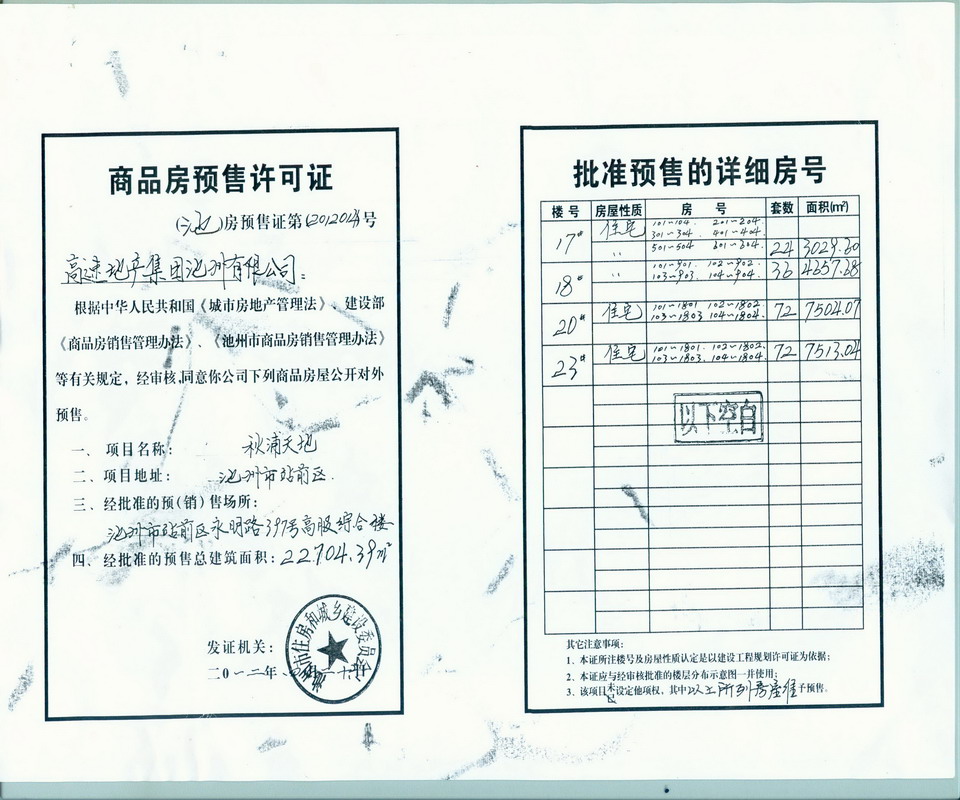 商品房预售许可证
(池)房预售证第(2012024)号
高速地产集团池州有限公司:
根据中华人民共和国《城市房地产管理法》、建设部
《商品房销售管理办法》、《池州市商品房销售管理办法》
等有关规定，经审核,同意你公司下列商品房屋公开对外
预售。
一、项目名称: 秋浦天地
二、项目地址: 池州市站前区.
三、经批准的预(销)售场所:
池州市站前区永明路397号高服综合楼
四、经批准的预售总建筑面积:22704.39m²
发证机关:
市住房和城乡建设委员会
二0一二年
批准预售的详细房号
楼号 房屋性质 房号 套数 面积(m²)
17# 住宅 101~104. 201~204.
301~304. 401~404.
〃 501~504 601~604. 24 3029.60
18# 〃 101~901. 102~902.
103~903. 104~904. 36 4657.68
20# 住宅 101~1801 102~1802
103~1803 104~1804. 72 7504.07
23# 住宅 101~1801. 102~1802.
103~1803. 104~1804. 72 7513.04
以下空白
其它注意事项:
1、本证所注楼号及房屋性质认定是以建设工程规划许可证为依据;
2、本证应与经审核批准的楼层分布示意图一并使用;
3、该项目未设定他项权，其中以上所列房屋准予预售。